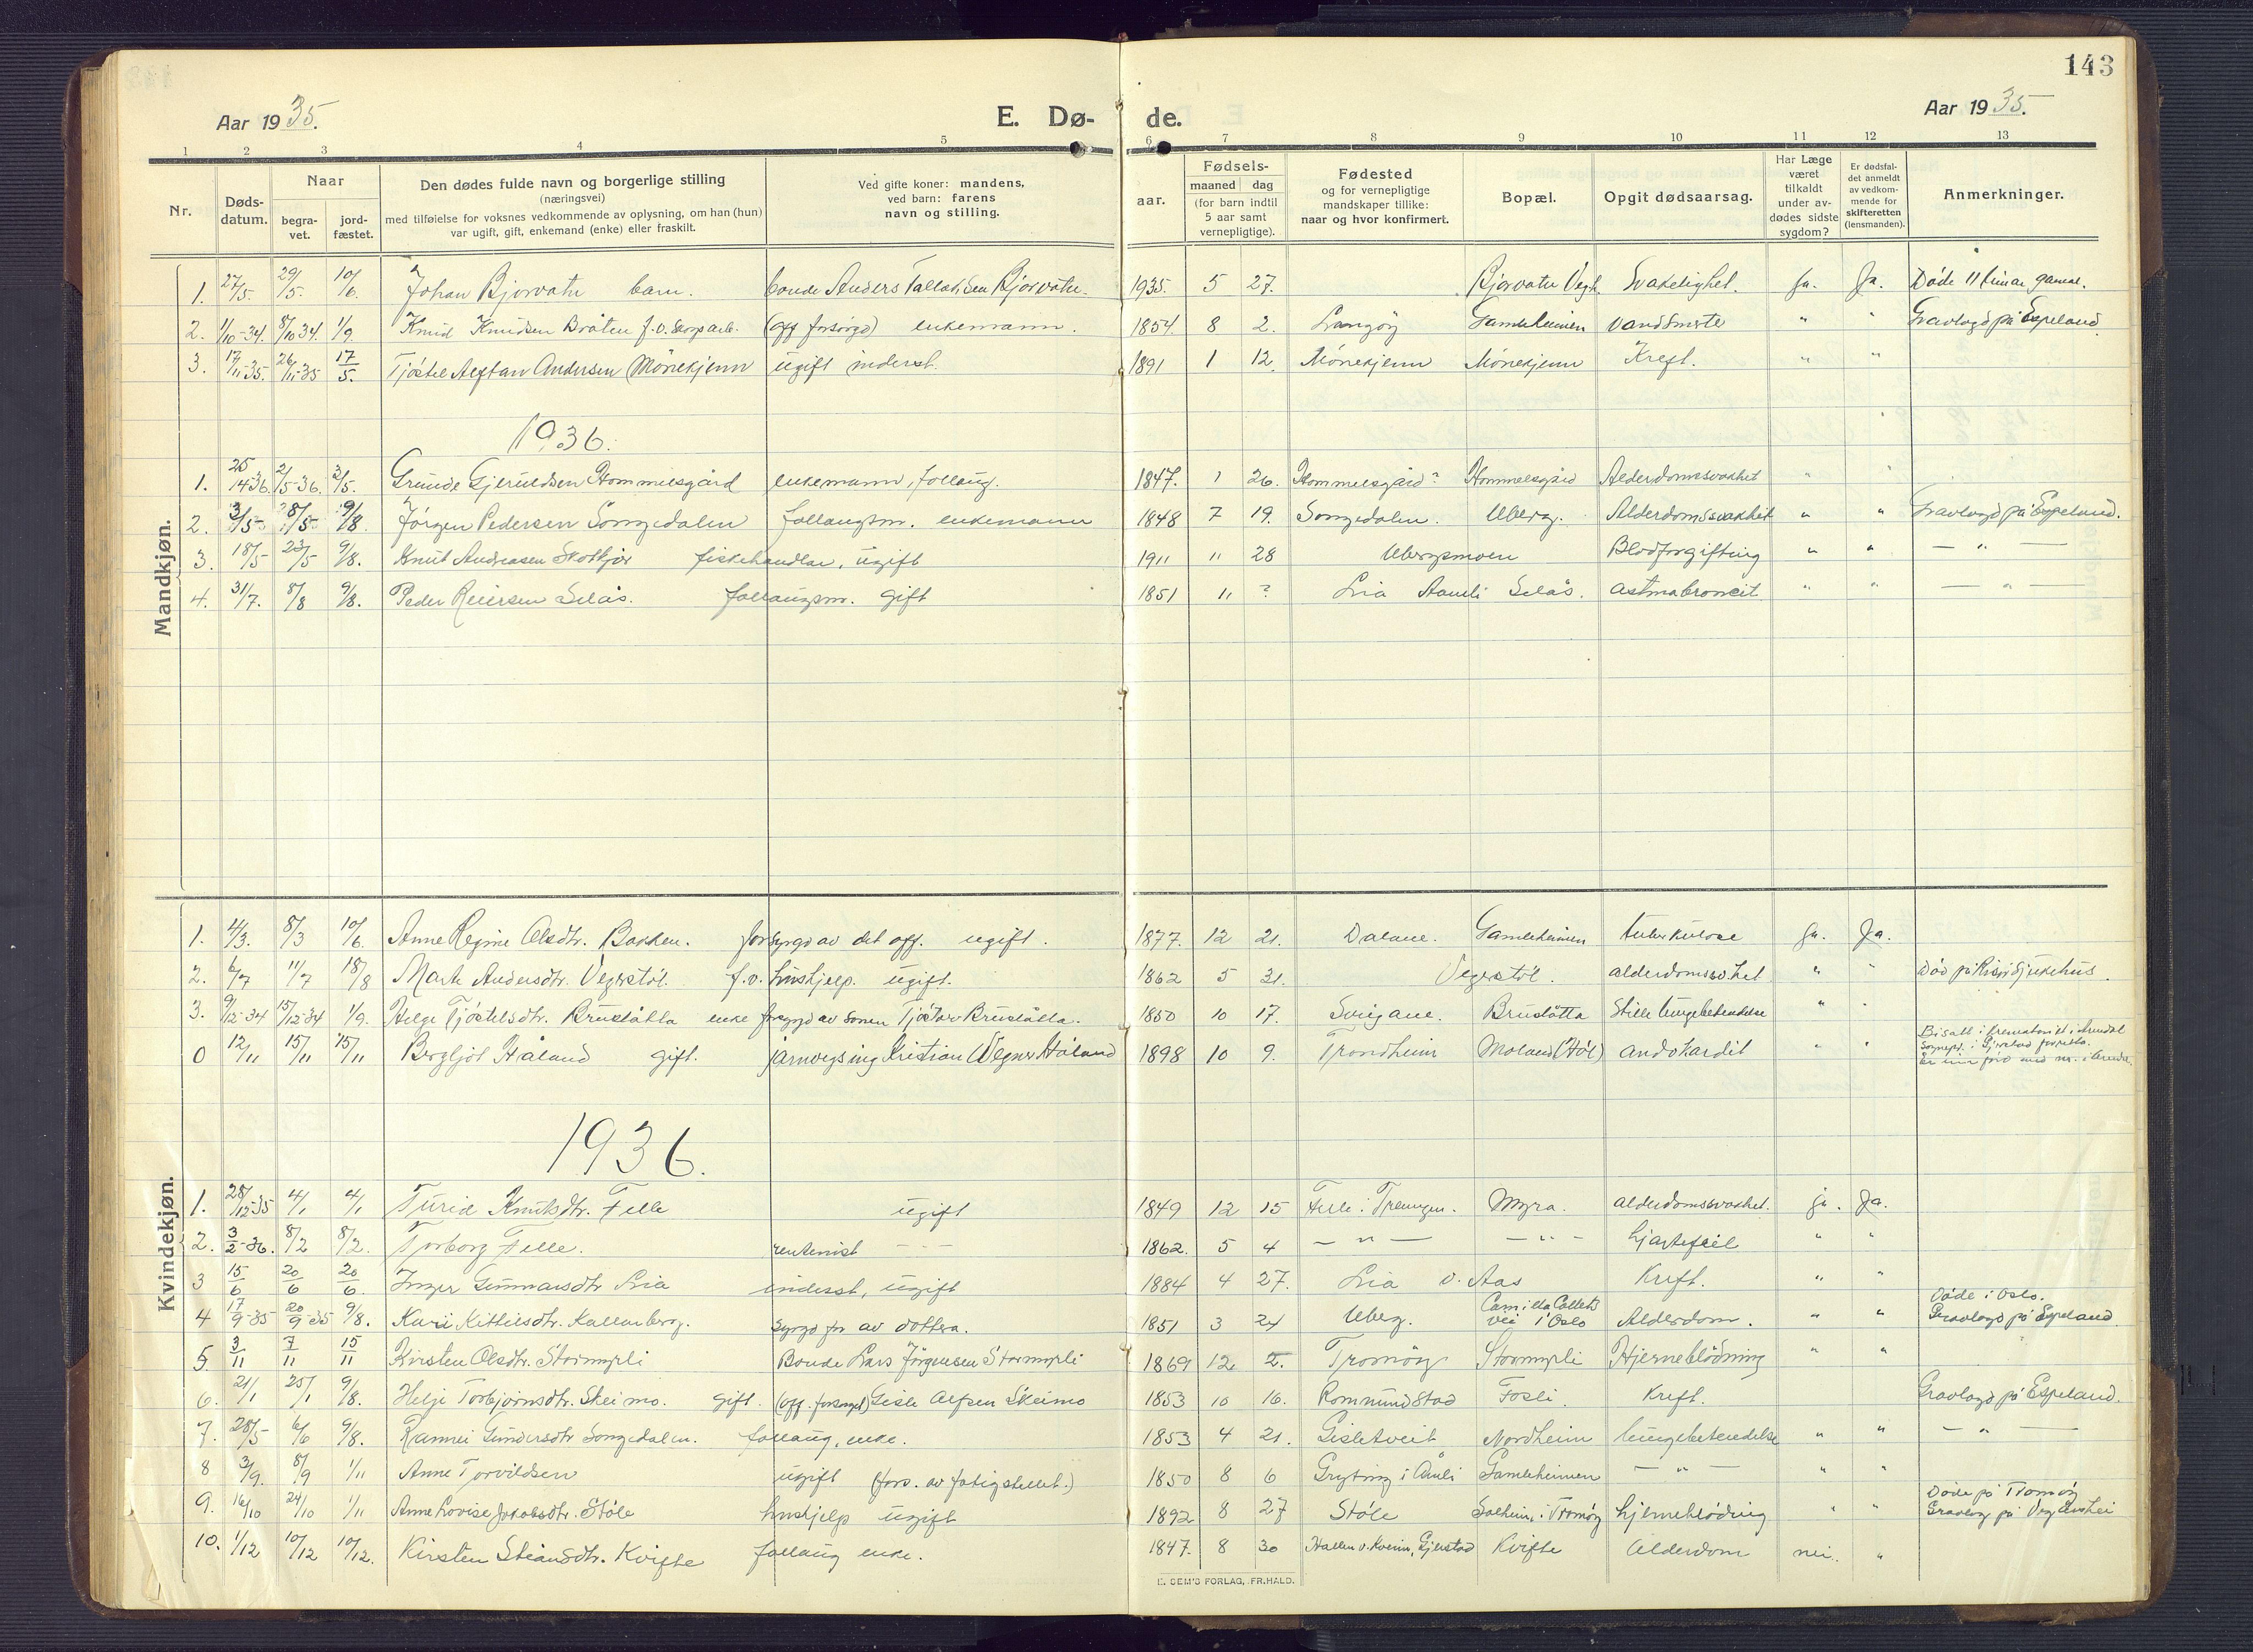 143
Aar 1935.
E. Dø-
de.
Aar 1935.
1 2 3 4 5 6 7 8 9 10 11 12 13
Nr.
Døds-
datum.
Naar
begra-
vet.
jord-
fæstet.
Den dødes fulde navn og borgerlige stilling
(næringsvei)
med tilføielse for voksnes vedkommende av oplysning, om han (hun)
var ugift, gift, enkemand (enke) eller fraskilt.
Ved gifte koner: mandens,
ved barn: farens
navn og stilling.
aar.
Fødsels-
maaned dag
(for barn indtil
5 aar samt
vernepligtige).
Fødested
og for vernepligtige
mandskaper tillike:
naar og hvor konfirmert.
Bopæl.
Opgit dødsaarsag.
Har Læge
været
tilkaldt
under av-
dødes sidste
sygdom?
Er dødsfal-
det anmeldt
av vedkom-
mende for
skifteretten
(lensmanden).
Anmerkninger.
Mandkjøn.
1. 27/5. 29/5. 10/6. Johan Bjorvatn barn. bonde Anders Tallaksen Bjorvatn. 1935. 5 27. Bjorvatn Vegh. Svakelighet. ja. Ja. Døde 11 timar gamal.
2. 1/10-34. 8/10 34. 1/9. Knud Knudsen Bråten f.v. skogarb. (off forsørgd) enkemann. 1854. 8 2. Langøy Gamleheimen Vandsmerte " " Gravlagd på Espeland.
3. 17/11-35. 26/11-35 17/5. Tjöstel Aestan Andersen Mönekjenn ugift inderst. 1891 1 12. Mönekjenn Mönekjenn Kreft. " "
1936.
1. 25/4-36. 2/5-36. 2/5. Grunde Gjeruldsen Hommelsgård enkemann, follaug. 1847. 1 26. Hommelsgård? Hommelsgård Alderdomssvakhet " "
2. 3/5- 8/5- 9/8. Jörgen Pedersen Songedalen follaugsm. enkemann 1848 7 19. Songedalen. Uberg. Alderdomssvakhet " " Gravlagd på Espeland.
3. 18/5- 23/5 9/8. Knut Andreasen fiskehandlar, ugift 1911 11 28 Ubergsmoen Blodforgifting " " — " —
4. 31/7. 8/8 9/8. Peder Reiersen Selås. follaugsm. gift 1851 11 ? Lia Aamli Selås. astmabronkit " " — " —
Kvindekjøn.
1. 4/3. 8/3 10/6. Anne Regine Olsdtr. Bakken. forsyrgd av det off. ugift. 1877. 12 21. Dalane. Gamleheimen tuberkulose Ja. Ja.
2. 6/7 11/7 18/8 Marte Andersdtr. Vegerstöl. f.v. hushjelp. ugift. 1862 5 31. Vegerstöl. alderdomssv.het " " Död på Risör Sjukehus.
3. 9/12-34 15/12-34 1/9. Helge Tjöstelsdtr. Bruslåtta enke forsyrgd av sonen Tjöstov Bruslåtta. 1850 10 17. Svigane. Bruslåtta Stille lungebetendelse " "
0 12/11 15/11 15/11 Bergljot Håland gift. jarnvegsing Kristian Wegner Håland 1898 10 9. Trondheim Moland (Höl) andokardit " " Bisatt i krematoriet i Arendal
1936.
1. 28/12-35 4/1 4/1 Turid Knutsdtr. Felle ugift 1849 12 15 Felle i Treungen. Myra. alderdomssvakhet. ja. Ja.
2. 3/2-36. 8/2 8/2. Torborg Felle. rentenist — — 1862. 5 4 — " — — " — hjartefeil " "
3 15/6 20/6 20/6. Inger Gunnarsdtr Lia inderst, ugift 1884 4 27. Lia v. Aas Kreft. " "
4 17/9-35 20/9-35 9/8. Kari Kittilsdtr. Kallarberg. syrgd for av dottera. 1851 3 24 Uberg. Camilla Colletts vei i Oslo Alderdom. " " Døde i Oslo. Gravlagd på Espeland.
5. 3/11 7/11 15/11 Kirsten Olsdtr. Stormyrli Bonde Lars Jörgensen Stormyrli 1869 12 2. Tromöy Stormyrli Hjerneblödning " "
6. 21/1 25/1 9/8. Helje Torbjörnsdtr. Skeimo. gift. (off. forsörget) Gisle Alfsen Skeimo 1853 10 16. Rommundstad Fosli. Kreft. Gravlagd på Espeland.
7. 28/5 6/6 9/8. Rannei Gundersdtr Songedalen. follaug, enke. 1853 4 21. Gisletveit Nordheim lungebetendelse " " — " —
8 3/9. 8/9 1/11 Anne Torvildsen ugift (fors. av fatigstellet.) 1850 8 6 Gryting i Åmli Gamleheimen — " — " "
9. 16/10 24/10 1/11 Anne Lovise Jakobsdtr. Støle hushjelp ugift 1892 8 27 Støle Solheim i Tromöy hjerneblödning " " Døde på Tromöy Gravlag på Vegårshei
10. 1/12 10/12 10/12. Kirsten Steansdtr. Kvifte follaug enke. 1847. 8 30 Hallen v. Kveim, Gjerstad Kvifte Alderdom nei. "
E. SEM'S FORLAG, FR.HALD.